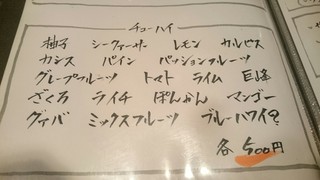 チューハイ
柚子 シークァーサー レモン カルピス
カシス パイン パッションフルーツ
グレープフルーツ トマト ライム 巨峰
ざくろ ライチ ぽんかん マンゴー
グァバ ミックスフルーツ ブルーハワイ?
各 500円